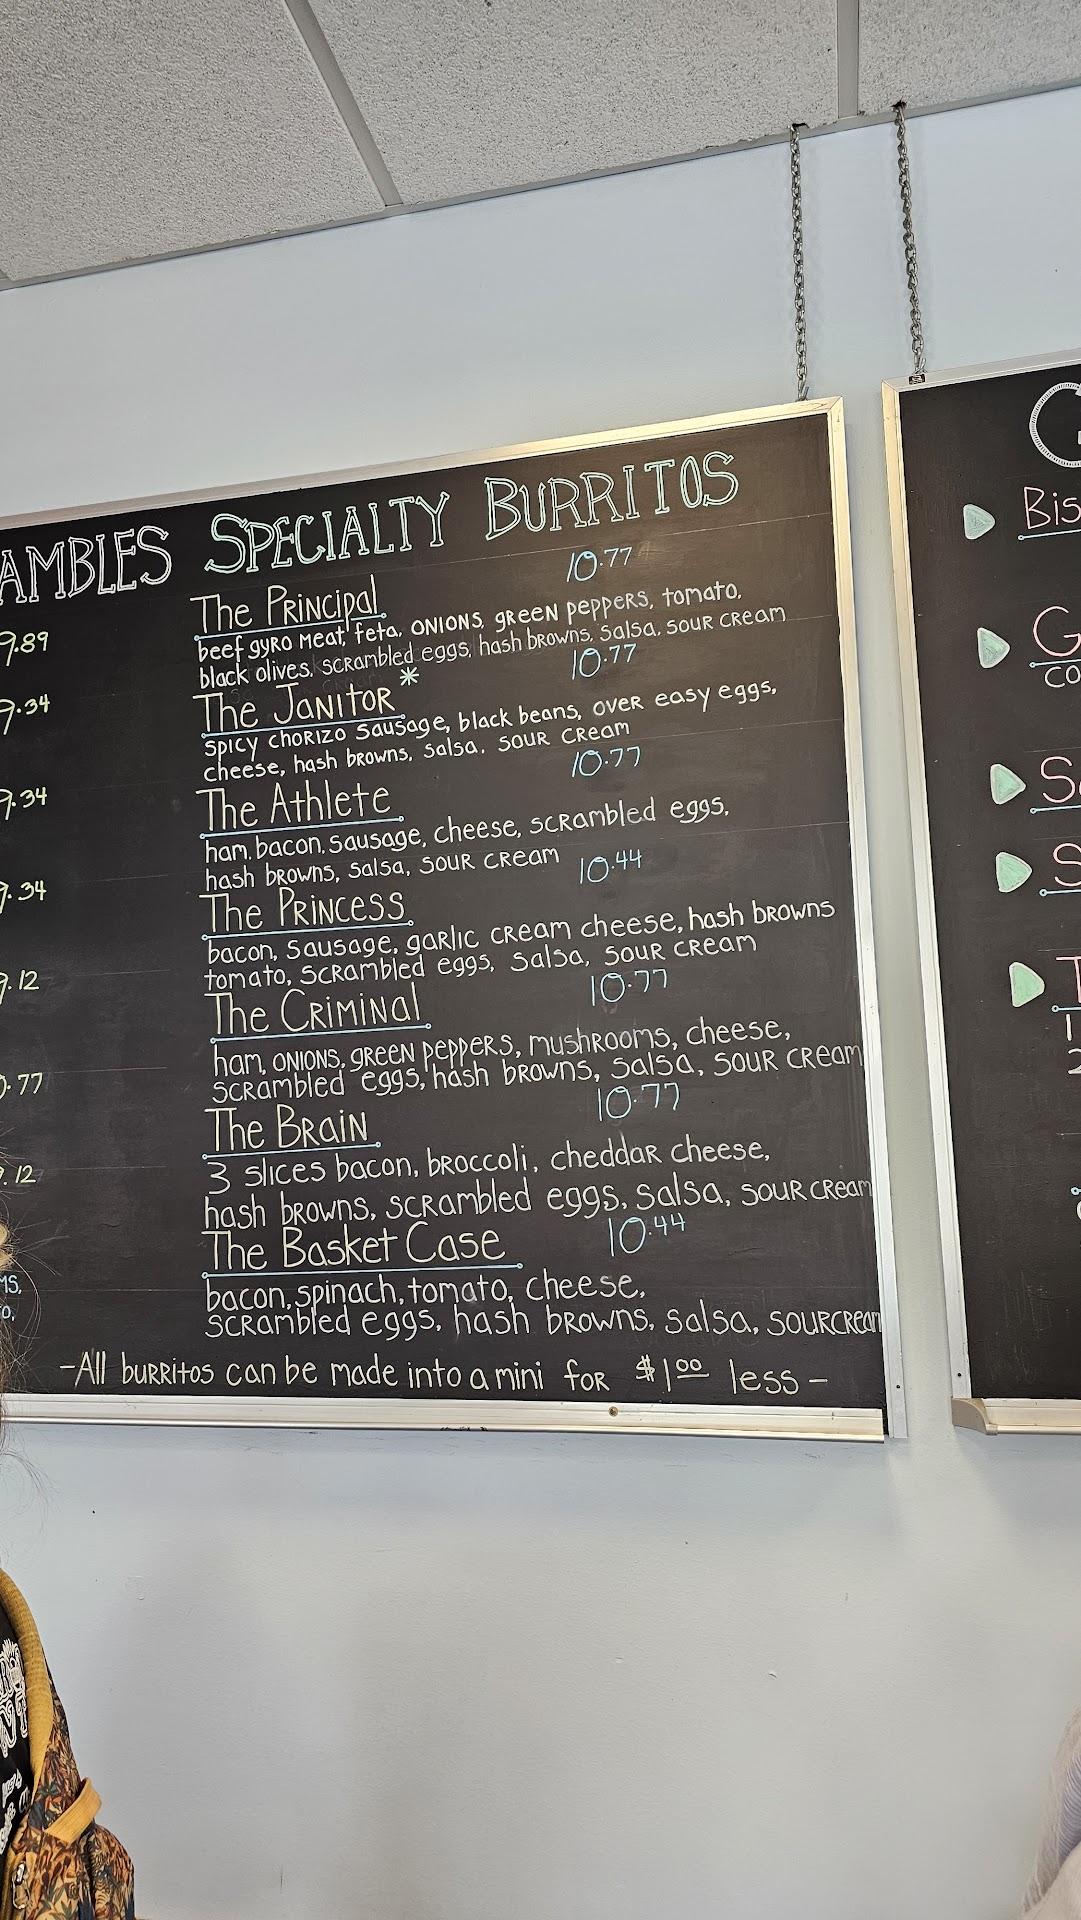 AMBLES
9.89
9.34
9.34
9.34
9.12
0.77
9.12
MS,
SPECIALTY BURRITOS
The PRiNCipal 10.77
beef gyro meat, feta, ONIONS, green peppers, tomato,
black olives, scrambled eggs, hash browns, salsa, sour cream
The JaNiTOR * 10.77
spicy chorizo sausage, black beans, over easy eggs,
cheese, hash browns, salsa, sour cream
The Athlete 10.77
ham, bacon, sausage, cheese, scrambled eggs,
hash browns, salsa, sour cream
The PRiNCESS 10.44
bacon, sausage, garlic cream cheese, hash browns
tomato, scrambled eggs, salsa, sour cream
The CRiMiNal 10.77
ham, ONIONS, green peppers, mushrooms, cheese,
scrambled eggs, hash browns, salsa, sour cream
The BRaiN 10.77
3 slices bacon, broccoli, cheddar cheese,
hash browns, scrambled eggs, salsa, sour cream
The Basket Case 10.44
bacon, spinach, tomato, cheese,
scrambled eggs, hash browns, salsa, sour cream
-All burritos can be made into a mini for $1.00 less-
G
Bis
G
co
S
S
T
1
2